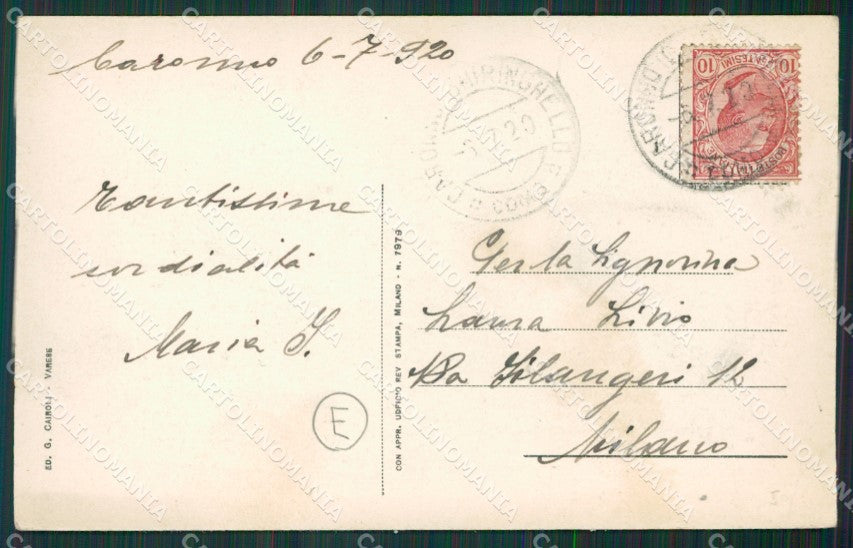 Caronno 6-7-920
CARONNO GHIRINGHELLO
7.20
COMO
10 CENTESIMI 10
Tantissime
cordialità
Maria S.
Gent.a Signorina
Laura Livio
Via Filangeri 12
Milano
ED. G. CAIROLI - VARESE
CON APPR. UFFICIO REV STAMPA, MILANO - N. 7979
E
CARTOLINOMANIA